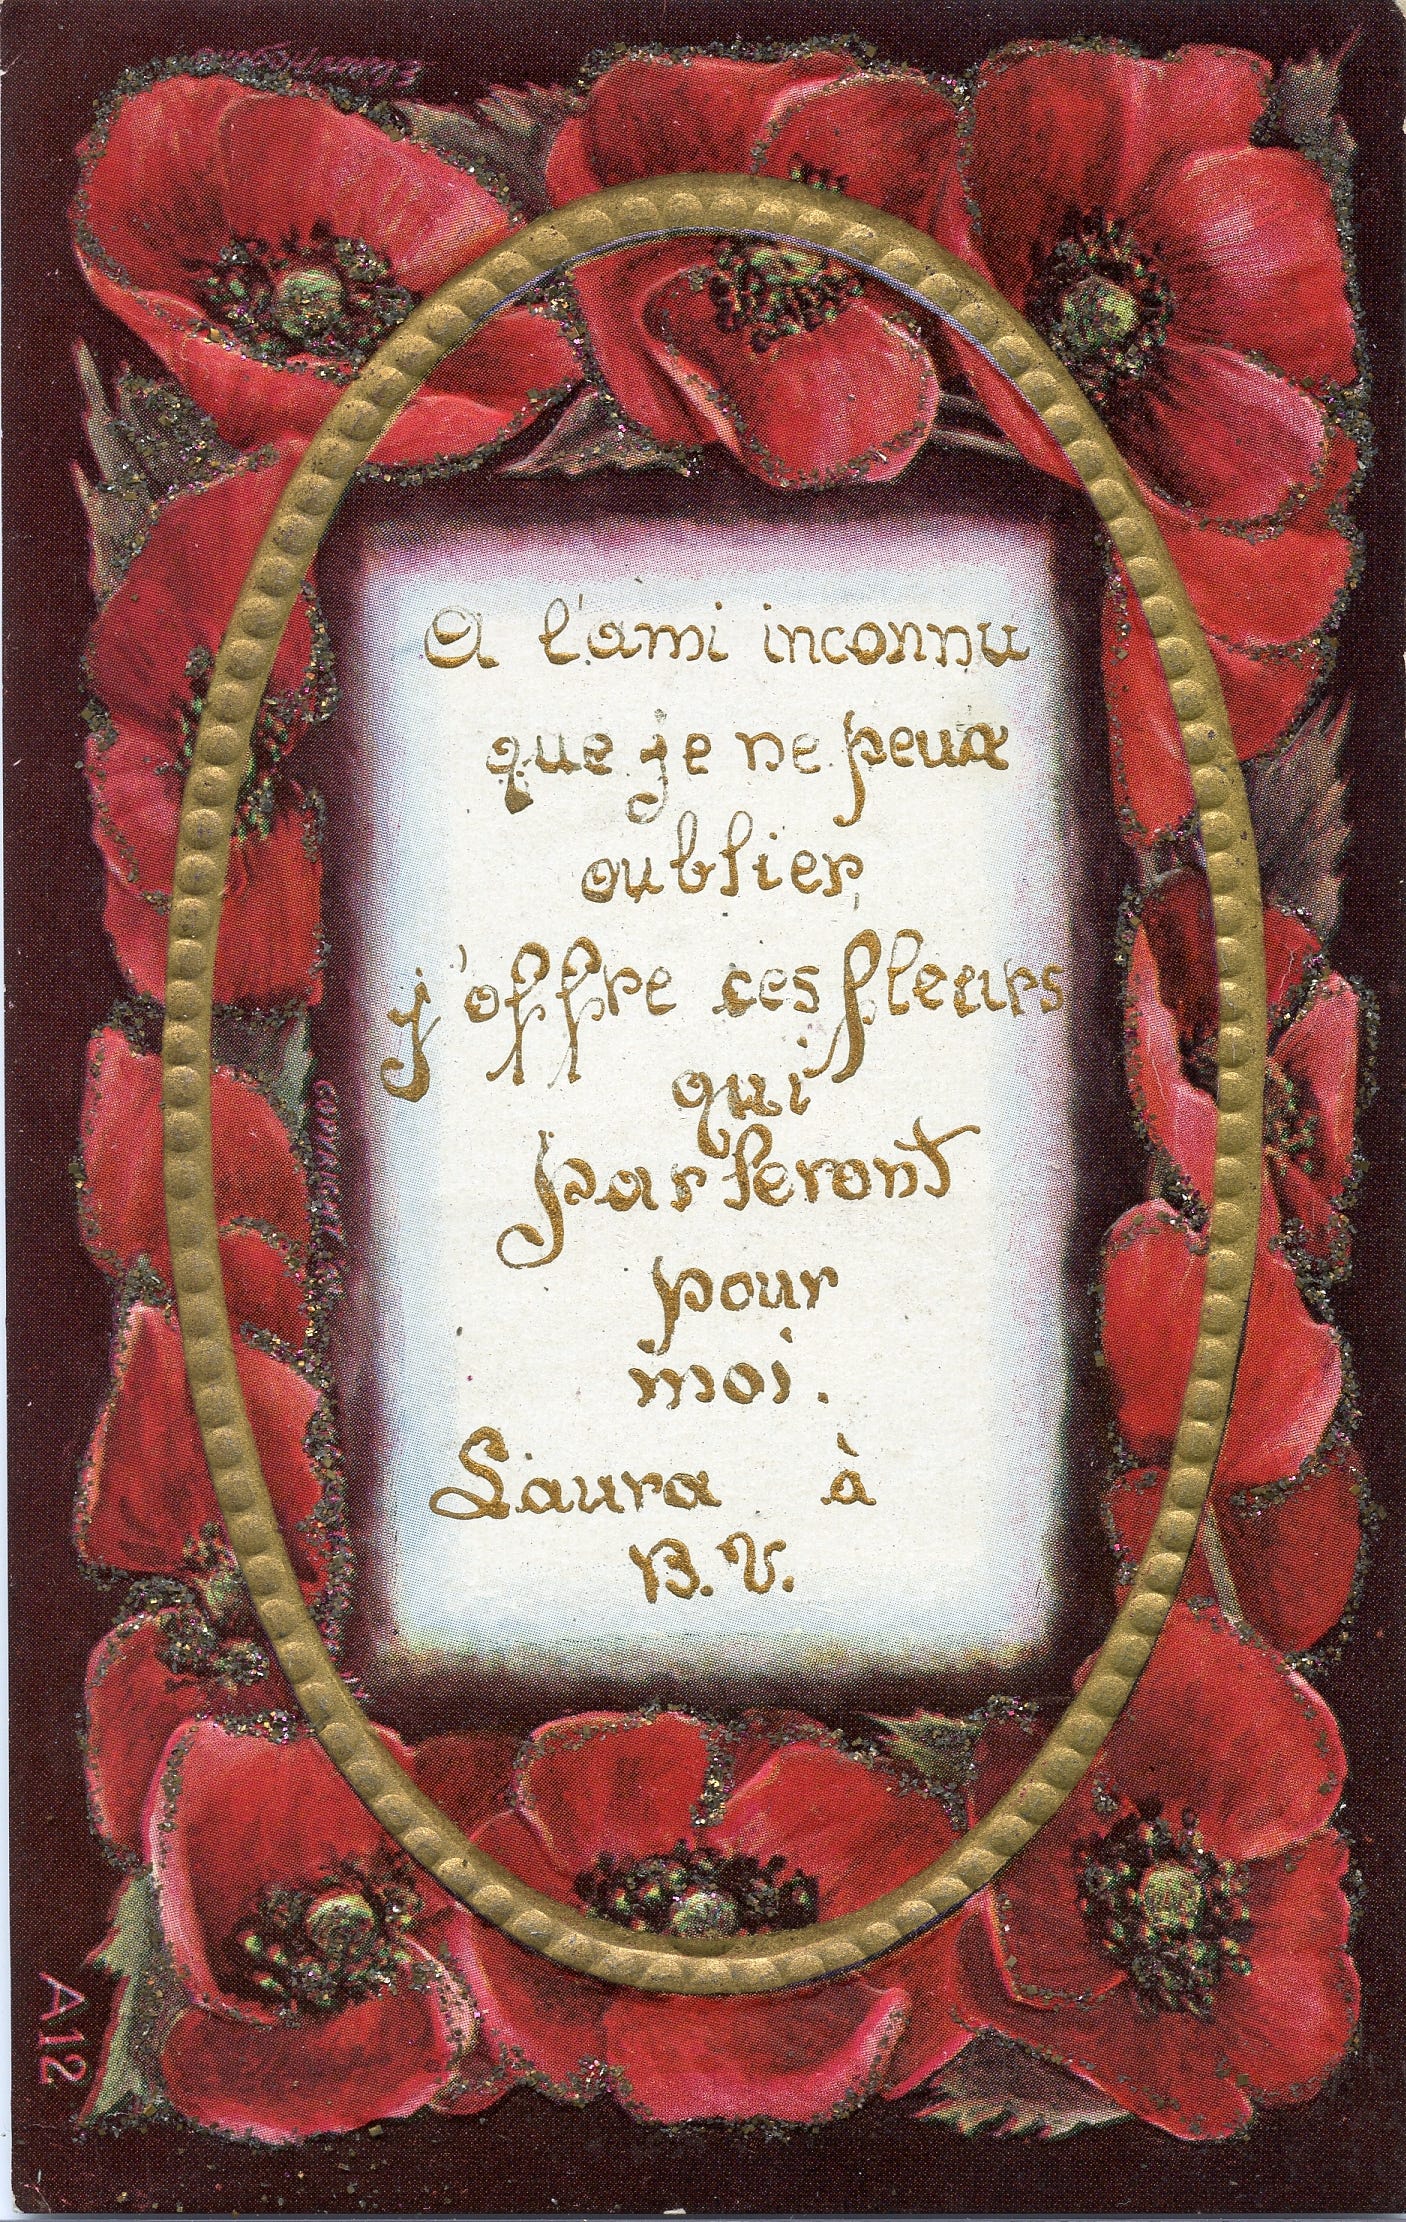 A l'ami inconnu
que je ne peux
oublier,
j'offre ces fleurs
qui
parleront
pour
moi.
Laura à
B. V.
COPYRIGHT
A12